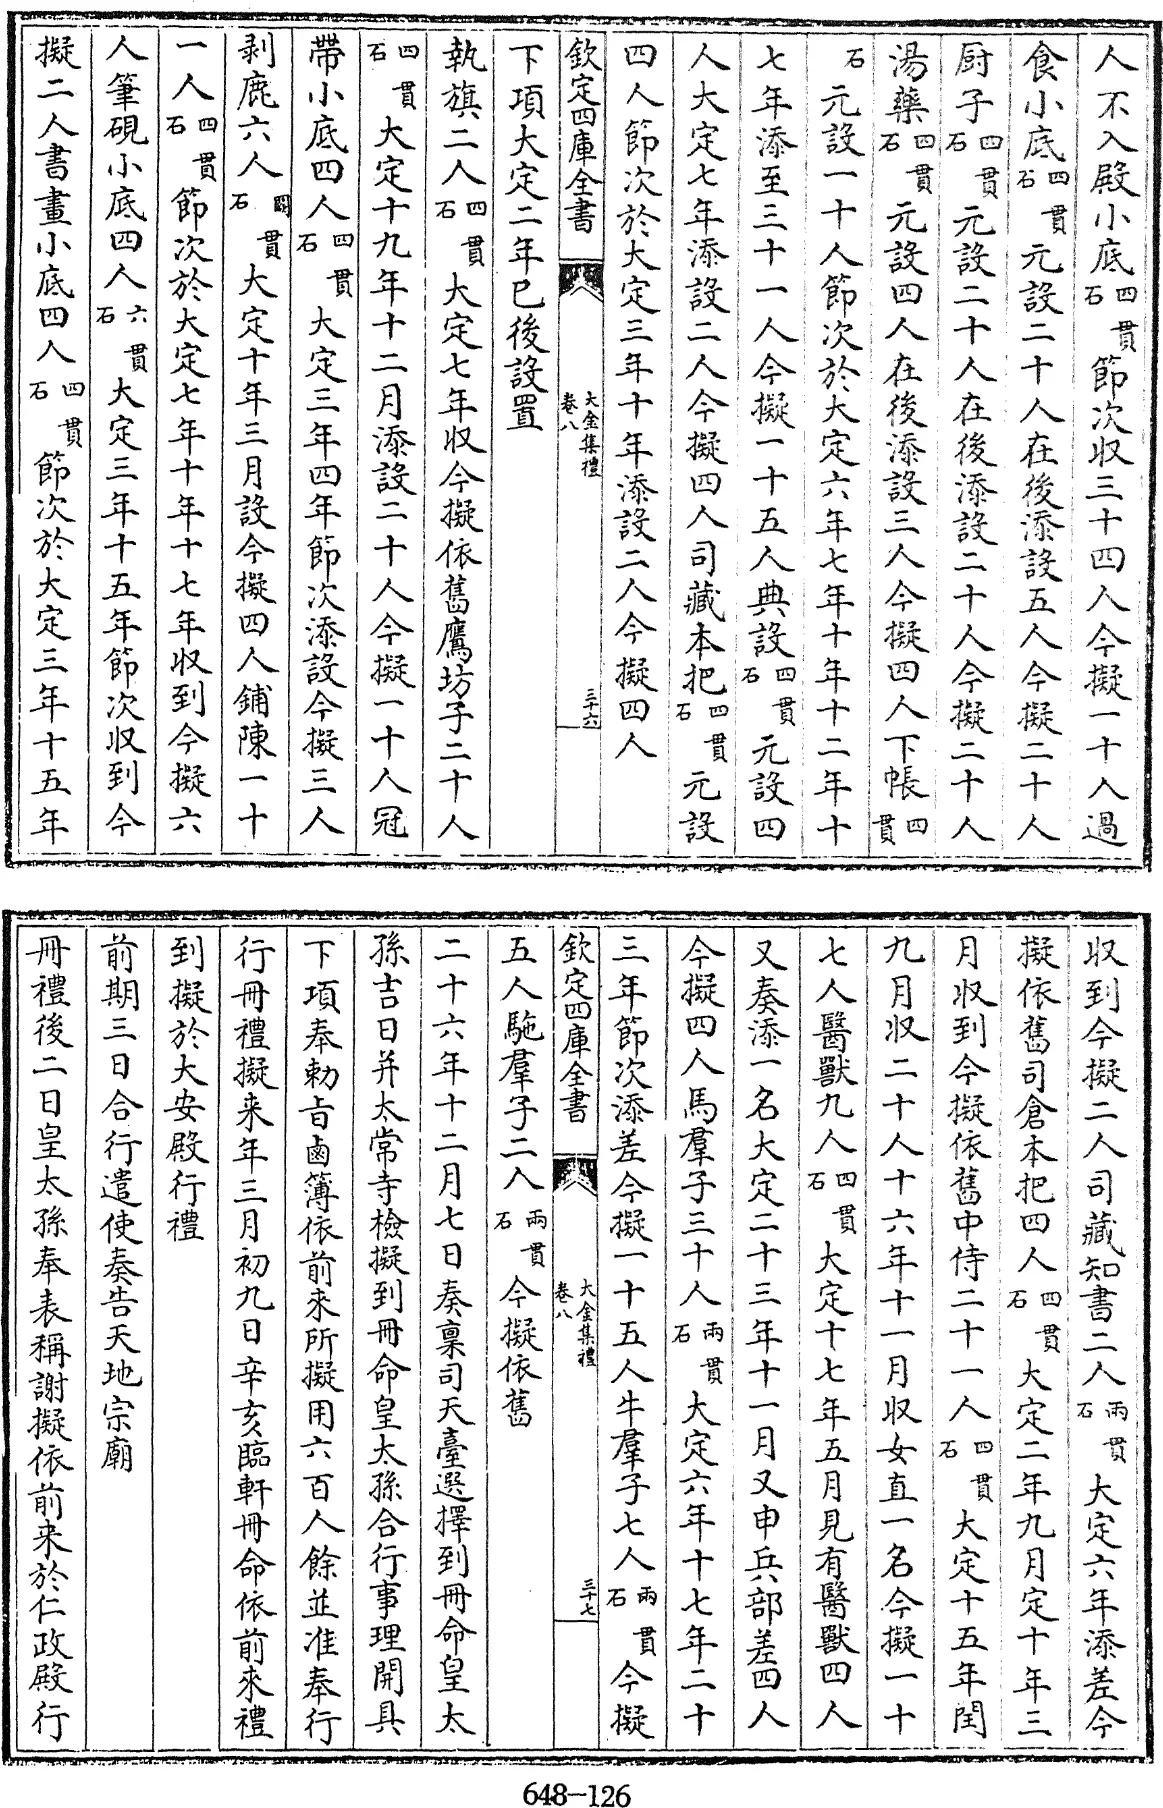 人不入殿小底四貫石節次收三十四人今擬一十人過
食小底四貫石元設二十人在後添設五人今擬二十人
厨子四貫石元設二十人在後添設二十人今擬二十人
湯藥四貫石元設四人在後添設三人今擬四人下帳四貫
石元設一十人節次於大定六年七年十年十二年十
七年添至三十一人今擬一十五人典設四貫石元設四
人大定七年添設二人今擬四人司藏本把四貫石元設
四人節次於大定三年十年添設二人今擬四人
欽定四庫全書 大金集禮卷八 三十六
下項大定二年已後設置
執旗二人四貫石大定七年收今擬依舊鷹坊子二十人
四貫石大定十九年十二月添設二十人今擬一十人冠
帶小底四人四貫石大定三年四年節次添設今擬三人
剥鹿六人四貫石大定十年三月設今擬四人鋪陳一十
一人四貫石節次於大定七年十年十七年收到今擬六
人筆硯小底四人六貫石大定三年十五年節次收到今
擬二人書畫小底四人四貫石節次於大定三年十五年
收到今擬二人司藏知書二人兩貫石大定六年添差今
擬依舊司倉本把四人四貫石大定二年九月定十年三
月收到今擬依舊中侍二十一人四貫石大定十五年閏
九月收二十人十六年十一月收女直一名今擬一十
七人醫獸九人四貫石大定十七年五月見有醫獸四人
又奏添一名大定二十三年十一月又申兵部差四人
今擬四人馬羣子三十人兩貫石大定六年十七年二十
三年節次添差今擬一十五人牛羣子七人兩貫石今擬
欽定四庫全書 大金集禮卷八 三十七
五人駞羣子二人兩貫石今擬依舊
二十六年十二月七日奏稟司天臺選擇到冊命皇太
孫吉日并太常寺檢擬到冊命皇太孫合行事理開具
下項奉勅旨鹵簿依前來所擬用六百人餘並准奉行
行冊禮擬来年三月初九日辛亥臨軒冊命依前來禮
到擬於大安殿行禮
前期三日合行遣使奏告天地宗廟
冊禮後二日皇太孫奉表稱謝擬依前来於仁政殿行
648—126